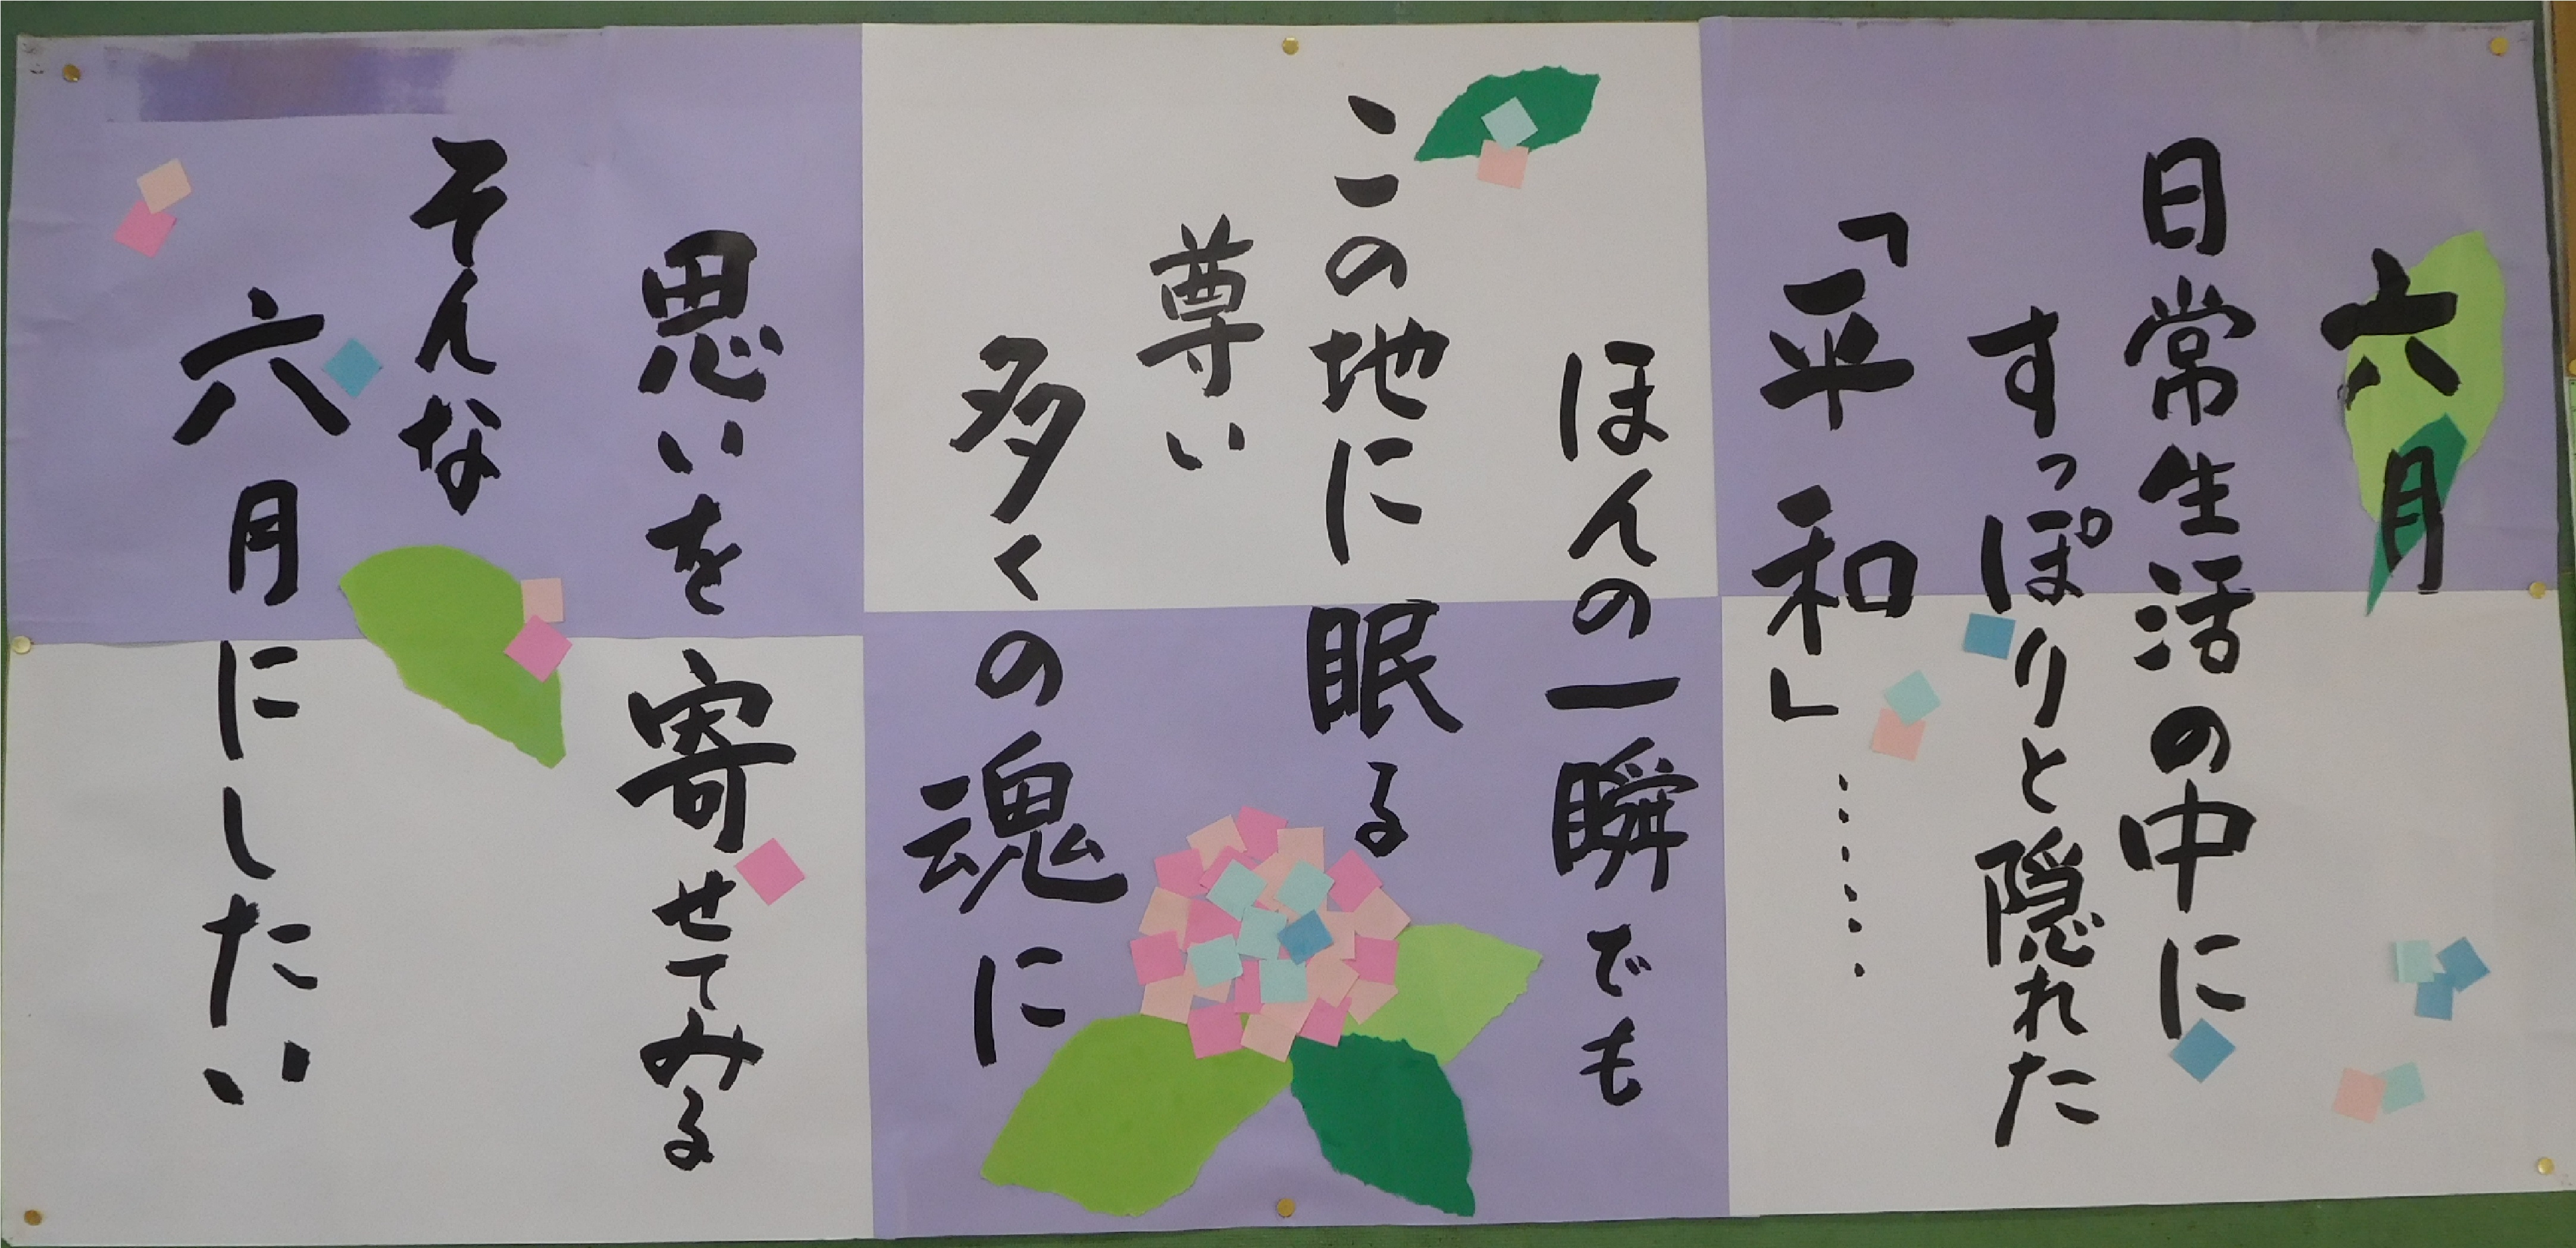 六月
日常生活の中に
すっぽりと隠れた
「平和」……
ほんの一瞬でも
この地に眠る
尊い
多くの魂に
思いを寄せてみる
そんな
六月にしたい